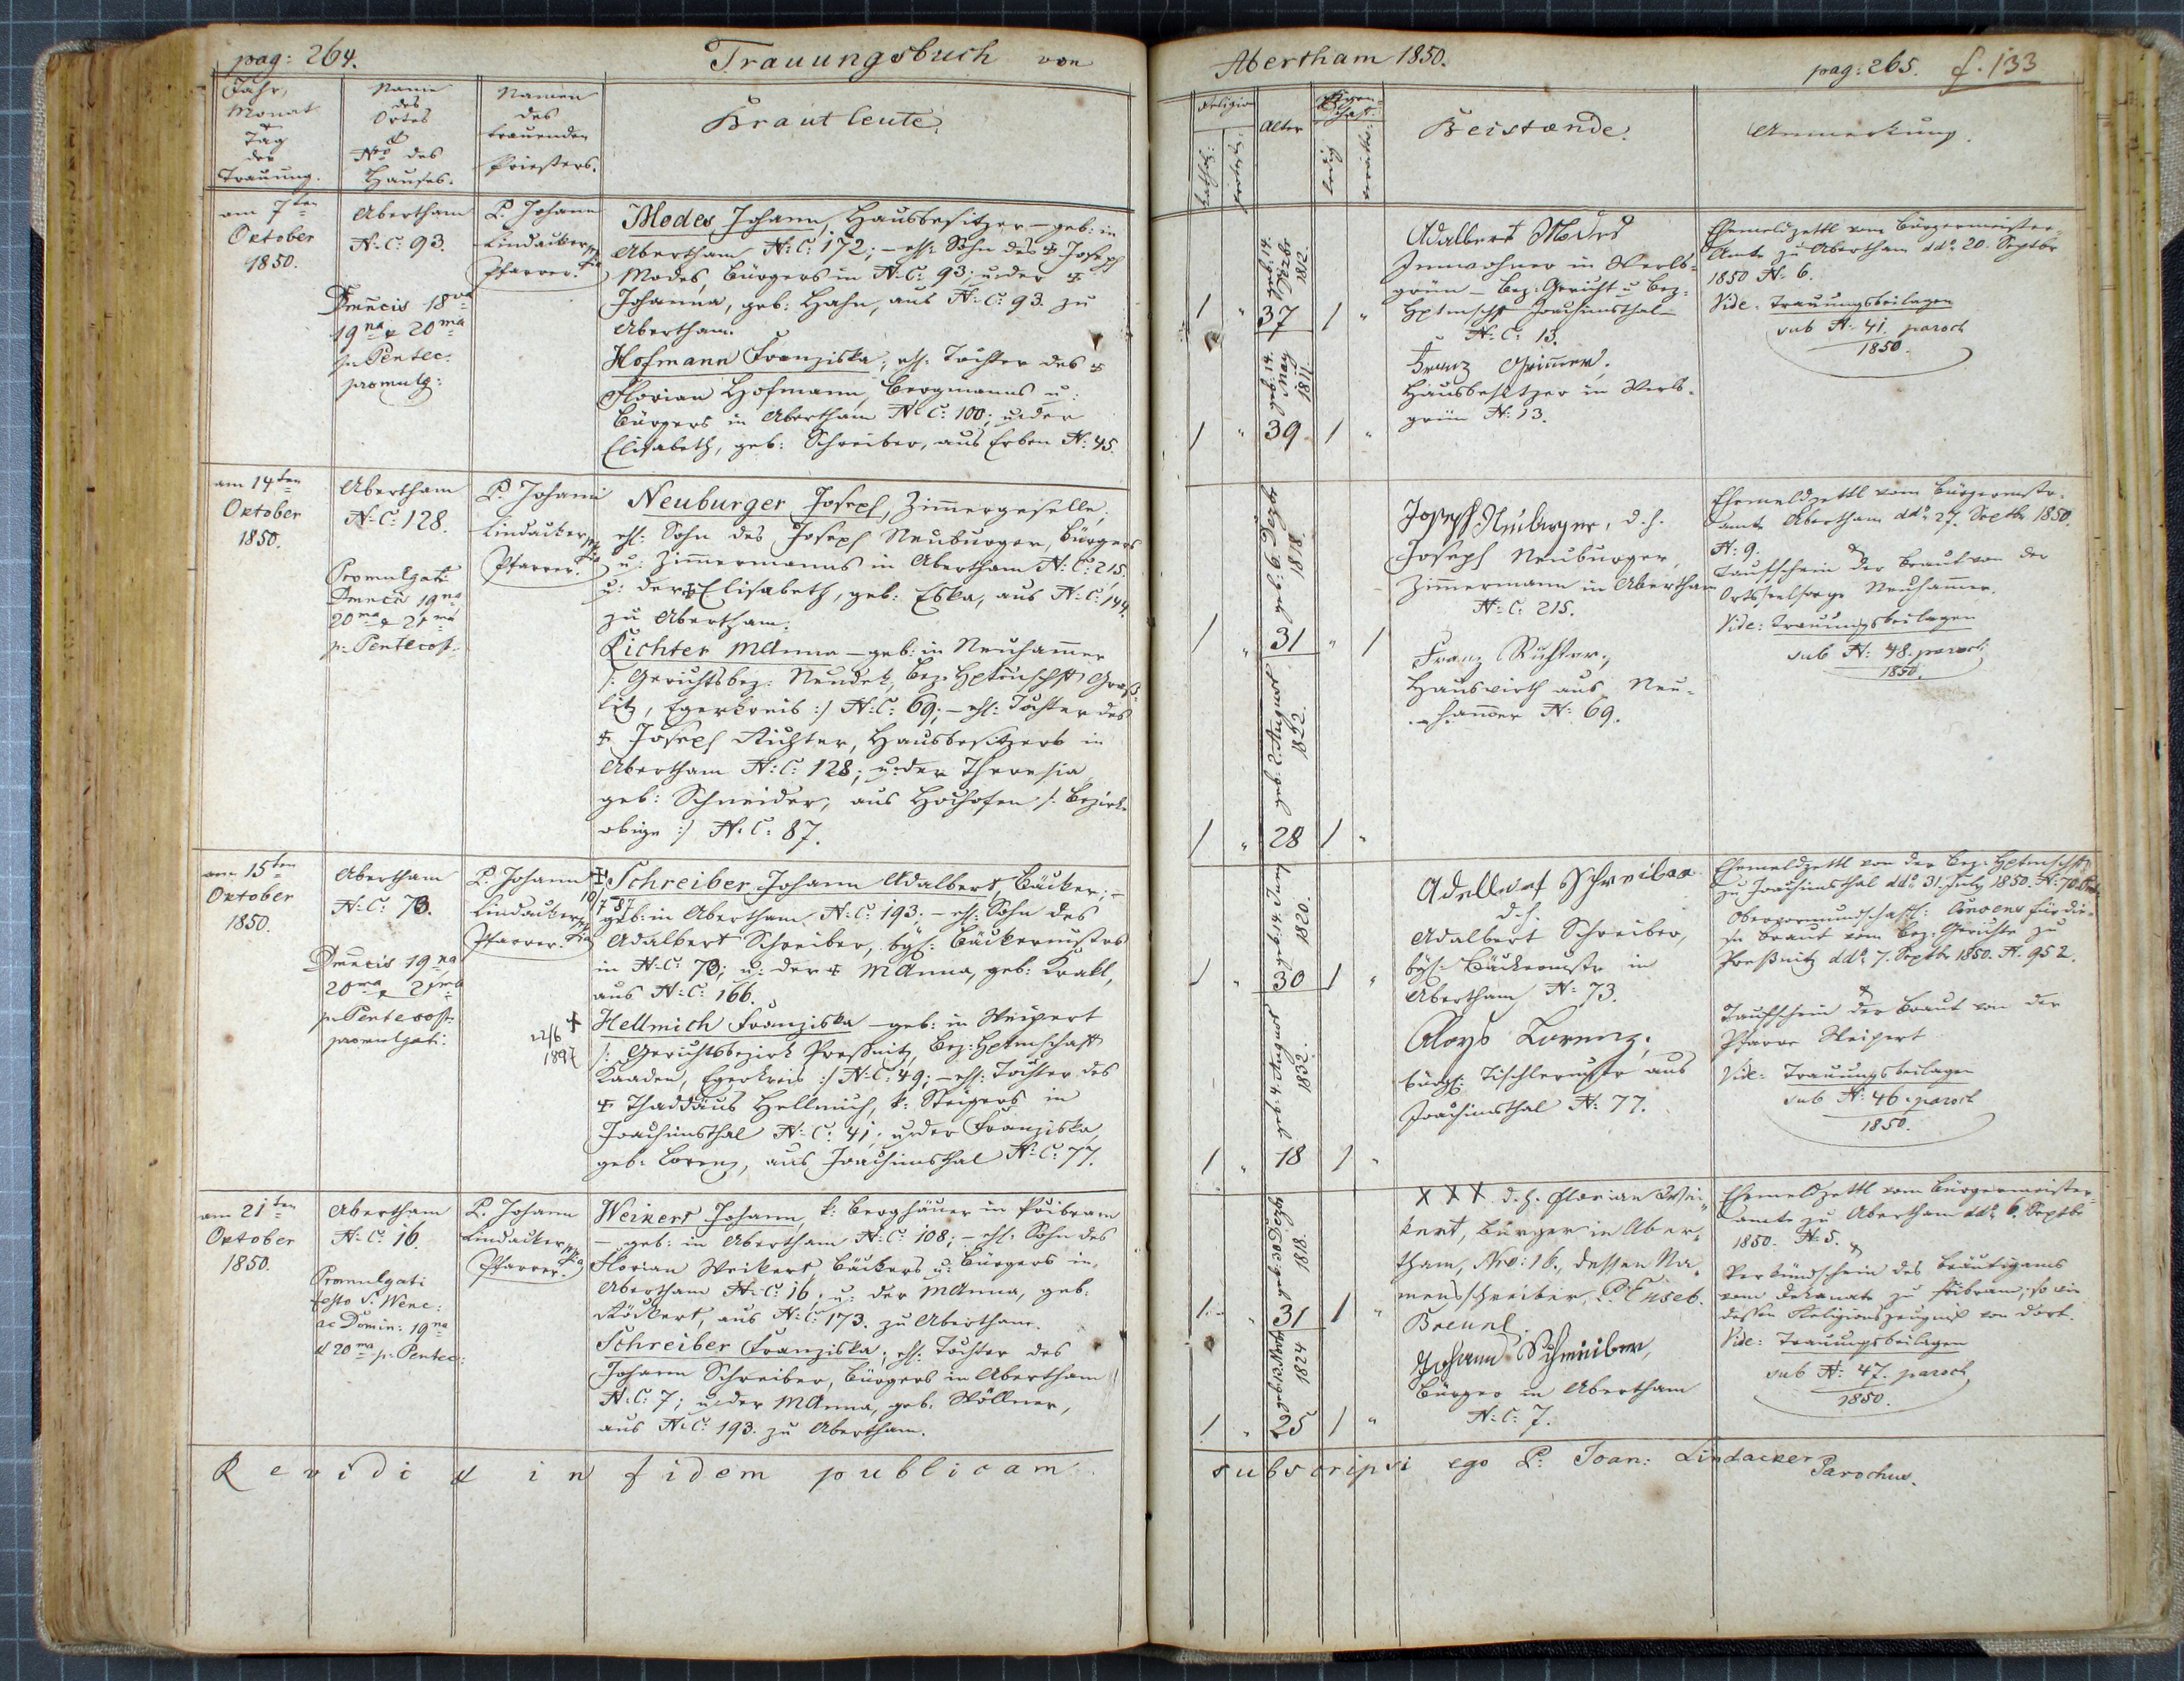 pag: 264.
Trauungsbuch von
Jahr,
Monat
&
Tag
der
Trauung.
Name
des
Ortes
&
Nro des
Hauses.
Namen
des
trauenden
Priesters.
Brautleute.
am 7ten
Oktober
1850.
Abertham
N: C: 93.
Dmncis 18va
19na & 20ma
p. Pentec:
promulg:
P. Johann
Lindacker
Pfarrer.
Modes Johann, Hausbesitzer – geb: in
Abertham N: C: 172; – ehl: Sohn des † Joseph
Modes, Bürgers in N: C: 93; u: der †
Johanna, geb: Hahn, aus N: C: 93 zu
Abertham.
Hofmann Franziska; ehl: Tochter des †
Florian Hofmann, Bergmanns u:
Bürgers in Abertham N: C: 100; u: der
Elisabeth, geb: Schreiber, aus Erben N: 45.
am 14ten
Oktober
1850.
Abertham
N: C: 128.
Promulgati
Dmncis 19na
20ma & 21ma
p: Pentecost.
P. Johann
Lindacker
Pfarrer.
Neuburger Joseph, Zimmergeselle,
ehl: Sohn des Joseph Neuburger, Bürgers
u: Zimmermanns in Abertham N: C: 215.
u: der † Elisabeth, geb: Eska, aus N: C: 144.
zu Abertham.
Richter MAnna – geb: in Neuhammer
/: Gerichtsbez: Neudek, Bez: Hptmschft Gras-
litz, Egerkreis :/ N: C: 69; – ehl: Tochter des
† Joseph Richter, Hausbesitzers in
Abertham N: C: 128; u: der Theresia
geb: Schneider, aus Hochofen /: Bezirk
obige :/ N: C: 87.
am 15ten
Oktober
1850.
Abertham
N: C: 73.
Dmncis 19na
20ma & 21ma
p. Pentecost:
promulgati.
P. Johann
Lindacker
Pfarrer.
† Schreiber Johann Adalbert, Bäcker; –
10/7 87
geb: in Abertham N: C: 193. – ehl: Sohn des
Adalbert Schreiber, bgl: Bäckermstrs
in N: C: 73; u: der † MAnna, geb: Krakl,
aus N: C: 166.
22/6 †
1897
Hellmich Franziska – geb: in Weipert
/: Gerichtsbezirk Preßnitz, Bez: Hptmschaft
Kaaden, Egerkreis :/ N: C: 49; – ehl: Tochter des
† Thaddäus Hellmich, k: Steigers in
Joachimsthal N: C: 41; u: der Franziska,
geb: Lorenz, aus Joachimsthal N: C: 77.
am 21ten
Oktober
1850.
Abertham
N: C: 16.
Promulgati
festo S. Wenc:
ac Domin: 19na
& 20ma p. Pentec:
P. Johann
Lindacker
Pfarrer.
Weikert Johann, k: Berghäuer in Přibram
– geb: in Abertham N: C: 108; – ehl: Sohn des
Florian Weikert, Bäckers u: Bürgers in
Abertham N: C: 16; u: der MAnna, geb:
Röckert, aus N: C: 173. zu Abertham.
Schreiber Franziska; ehl: Tochter des
Johann Schreiber, Bürgers in Abertham
N: C: 7; u: der MAnna, geb: Wöllner,
aus N: C: 193. zu Abertham.
Revidi & in fidem publicam
Abertham 1850.
pag: 265. f. 133
Religion
Alter
Eigenschaft
ledig
Beistande.
Anmerkung.
1 " 37 1 "
geb: 14. Dezbr 1812.
1 " 39 1 "
geb: 14. May 1811.
Adalbert Modes
Innwohner in Werls-
grün – Bez: Gericht u: Bez:
Hptmschft Joachimsthal –
N: C: 13.
Franz Grimmer.
Hausbesitzer in Werls-
grün N: 13.
Ehemeldzettl vom Bürgermeister-
Amte zu Abertham ddo 20. Septbr
1850 N: 6.
Vide: Trauungsbeilagen
sub N: 41. paroch
1850.
1 " 31 " 1
geb: 6. Dezbr 1818.
1 " 28 1 "
geb: 2. August 1822.
Joseph Neuburger, d. h.
Joseph Neuburger,
Zimmermann in Abertham
N: C: 215.
Franz Richter.,
Hauswirth aus Neu-
hammer N: 69.
Ehemeldzettl vom Bürgermstr-
amte Abertham ddo 27. Septbr 1850.
N: 9. &
Taufschein der Braut von der
Ortsseelsorge Neuhammer.
Vide: Trauungsbeilagen
sub N: 48. paroch
1850.
1 " 30 1 "
geb: 14. Juny 1820.
1 " 18 1 "
geb: 4. August 1832.
Adelbert Schreiber
d. h.
Adalbert Schreiber,
bgl: Bäckermstr in
Abertham N: 73.
Aloys Lorenz,
bürgl: Tischlermstr aus
Joachimsthal N: 77.
Ehemeldzettl von der Bez: Hptmschft
zu Joachimsthal ddo 31. July 1850. N: 70.
Obervormundschaftl: Consens für die-
se Braut vom Bez: Gerichte zu
Preßnitz ddo 7. Septbr 1850. N. 952.
&
Taufschein der Braut von der
Pfarre Weipert
Vide: Trauungsbeilagen
sub N: 46. paroch
1850.
1 " 31 1 "
geb: 30 Dezbr 1818.
1 " 25 1 "
geb: 13. Novbr 1824
XXX d. h. Florian Wei-
kert, Bürger in Aber-
tham, Nro: 16., dessen Na-
mensschreiber, P. Euseb.
Breunl.
Johann Schreiber,
Bürger in Abertham
N: C: 7.
Ehemeldzettl vom Bürgermeister-
amte zu Abertham ddo 6. Septbr
1850. N: 5. &
Verkündschein des Bräutigams
vom Dekanate zu Přibram; so wie
dessen Religionszeugniß von dort.
Vide: Trauungsbeilagen
sub N: 47. paroch
1850.
subscripsi ego P: Joan: Lindacker
Parochus.